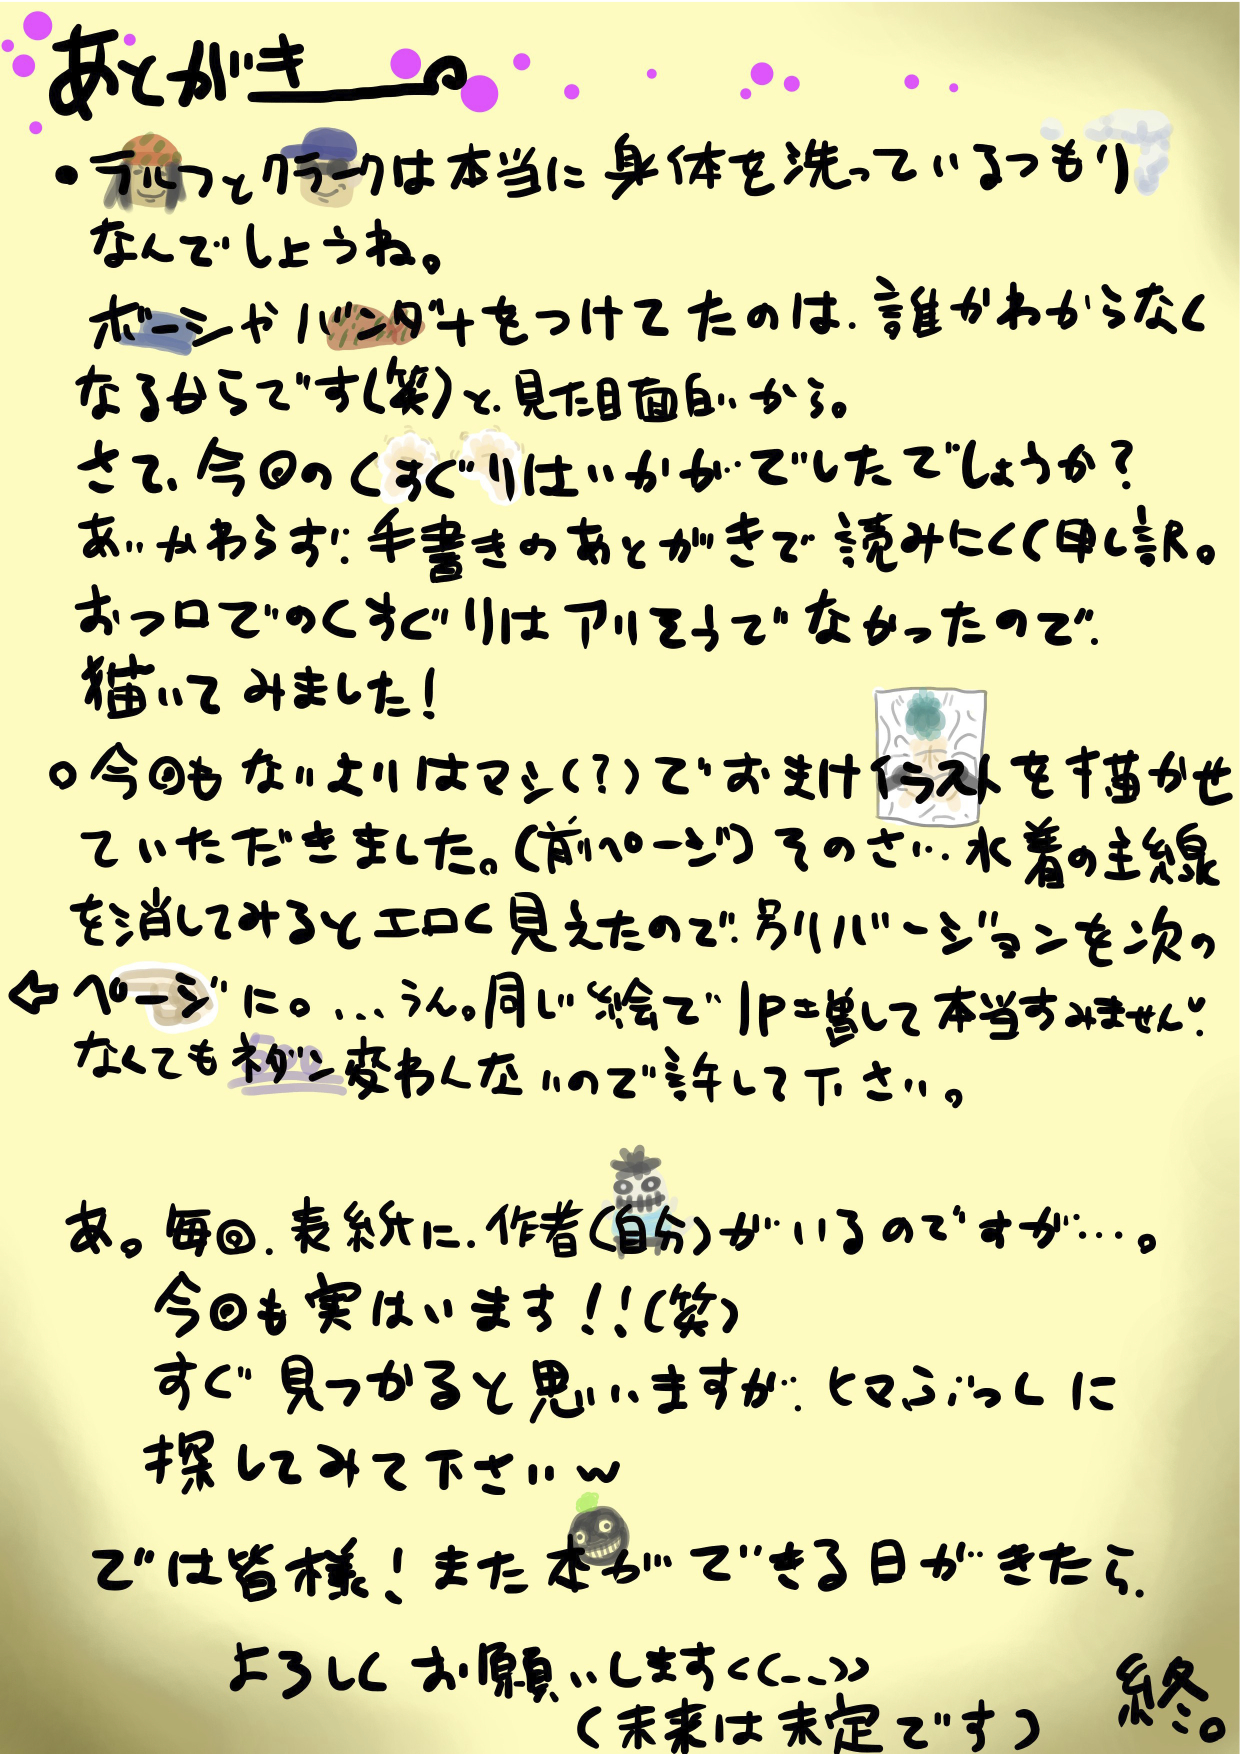 あとがき
・ラルフとクラークは本当に身体を洗っているつもり
なんでしょうね。
ボーシやバンダナをつけてたのは、誰かわからなく
なるからです(笑)と、見た目面白いから。
さて、今回のくすぐりはいかがでしたでしょうか?
あいかわらず、手書きのあとがきで読みにくく申し訳。
お゙つ口でのくすぐりはアリそうでなかったので、
猫いてみました!
○今回もないよりはマシ(?)でおまけイラストを描かせ
ていただきました。(前ページ)そのさい、水着の主線
を消してみるとエロく見えたので、別バージョンを次の
⇦ページに。…うん。同じ絵で1P増して本当すみません!
なくてもネダン変わんないので許して下さい。
あ。毎回、表紙に、作者(自分)がいるのですが…。
今回も実はいます!!(笑)
すぐ見つかると思いますが、ヒマぶっしに
探してみて下さいw
では皆様!また本ができる日がきたら、
よろしくお願いします<(_ _)>
(未来は未定です)
終。